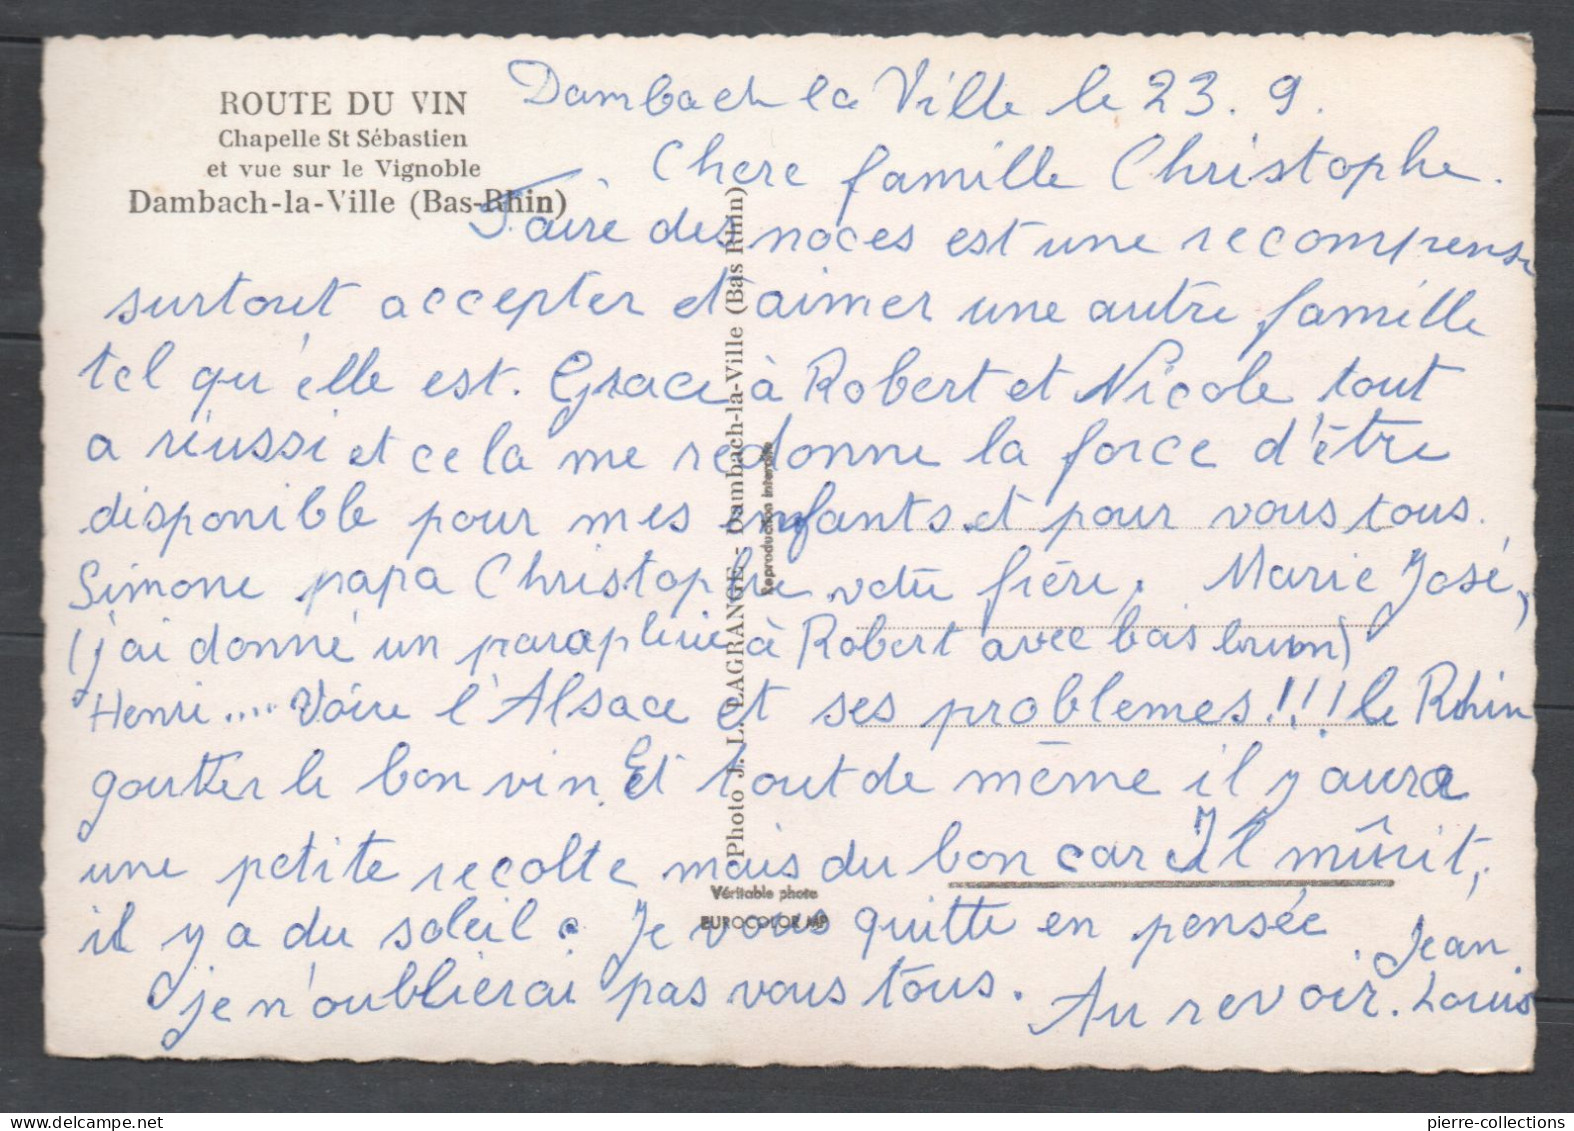 ROUTE DU VIN
Chapelle St Sébastien
et vue sur le Vignoble
Dambach-la-Ville (Bas-Rhin)
Dambach la Ville le 23.9.
Chere famille Christophe.
Faire des noces est une recompense
surtout accepter et aimer une autre famille
tel qu'elle est. Grace à Robert et Nicole tout
a réussi et cela me redonne la force d'être
disponible pour mes enfants et pour vous tous.
Simone papa Christophe votre frère, Marie José,
(j'ai donné un parapluie à Robert avec bois brun)
Henri.... Voire l'Alsace et ses problemes!!! le Rhin
goutter le bon vin. Et tout de même il y aura
une petite recolte mais du bon car Il mûrit,
il y a du soleil. Je vous quitte en pensée
je n'oublierai pas vous tous. Au revoir. Jean
Louis
Photo J. L. LAGRANGE - Dambach-la-Ville (Bas Rhin)
Reproduction interdite
Véritable photo
EUROCOLOR MP
delcampe.net
pierre-collections